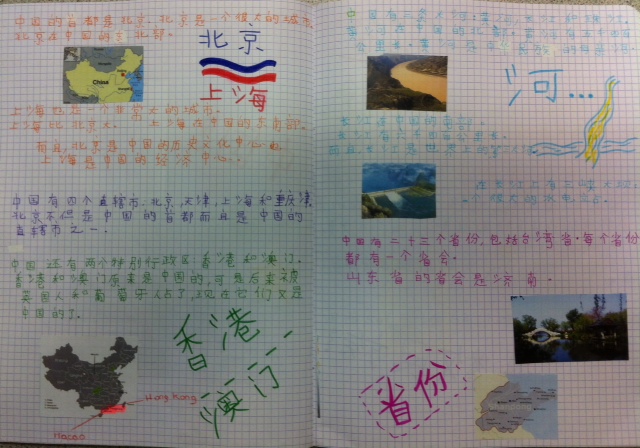 中国的首都是北京．北京是一个很大的城市，
北京在中国的东北部．
北京
China
上海
上海也是一个非常大的城市．
上海比北京大．上海在中国的东南部．
而且，北京是中国的历史文化中心，
上海是中国的经济中心．
中国有四个直辖市：北京，天津，上海和重庆
北京不但是中国的首都而且是中国的
直辖市之一．
中国还有两个特别行政区香港和澳门．
香港和澳门原来是中国的，可是后来被
英国人和葡萄牙人占了，现在它们又是
中国的了．
香港
澳门
Hong Kong
Macao
黄河在中国的北部．
河...
长江在中国的南部．
而且，长江是世界上
在长江上有三峡大坝
一个很大的水电站．
中国有二十三个省份，包括台湾省．每个省份
都有一个省会．
山东省的省会是济南．
省份